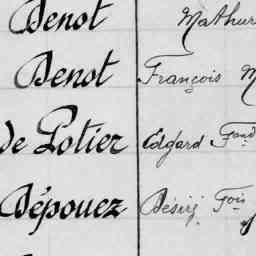 Benot Mathur
Benot François M
De Potier Edgard Fond
Dépouez Désiré Fois